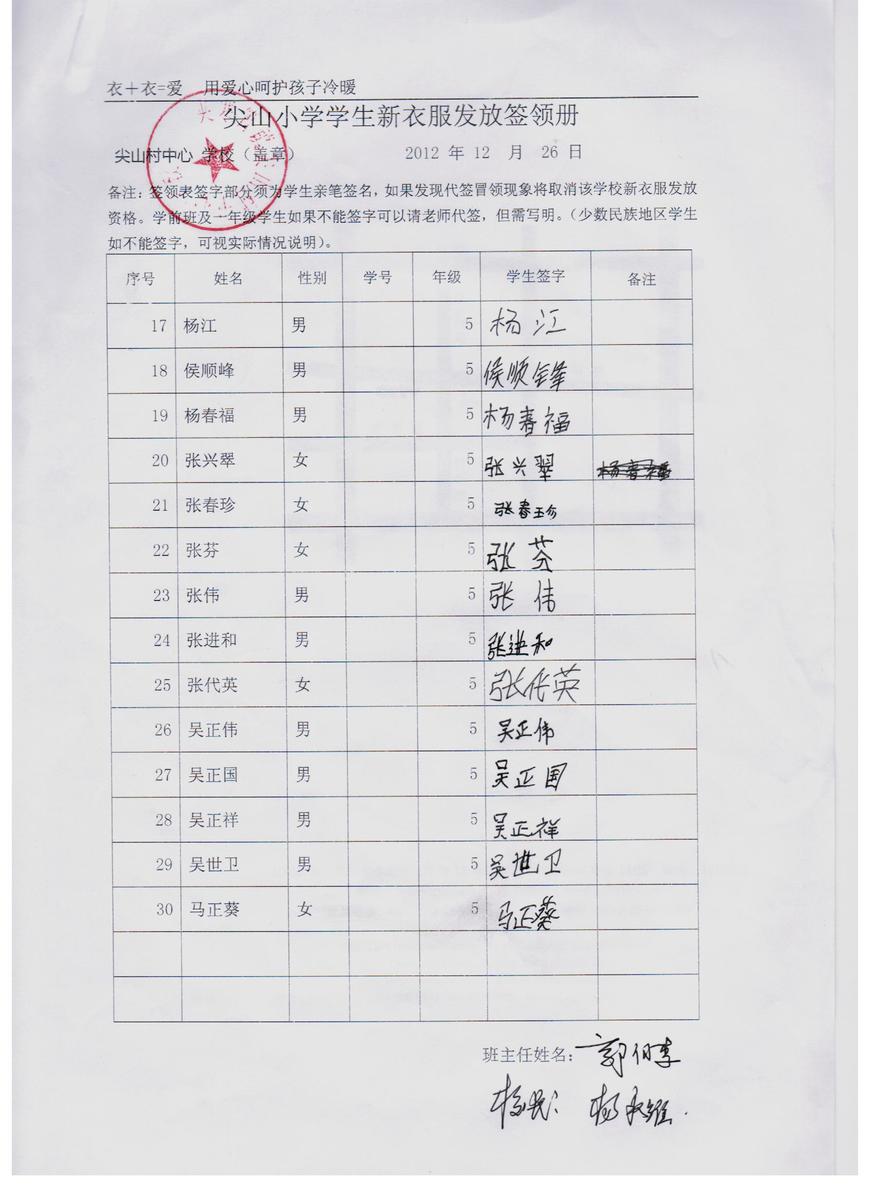 衣＋衣=爱 用爱心呵护孩子冷暖
尖山小学学生新衣服发放签领册
尖山村中心 学校（盖章） 2012 年 12 月 26 日
备注：签领表签字部分须为学生亲笔签名，如果发现代签冒领现象将取消该学校新衣服发放
资格。学前班及一年级学生如果不能签字可以请老师代签，但需写明。（少数民族地区学生
如不能签字，可视实际情况说明）。
序号 姓名 性别 学号 年级 学生签字 备注
17 杨江 男 5 杨江
18 侯顺峰 男 5 侯顺锋
19 杨春福 男 5 杨春福
20 张兴翠 女 5 张兴翠 杨春福
21 张春珍 女 5 张春珍
22 张芬 女 5 张芬
23 张伟 男 5 张伟
24 张进和 男 5 张进和
25 张代英 女 5 张代英
26 吴正伟 男 5 吴正伟
27 吴正国 男 5 吴正国
28 吴正祥 男 5 吴正祥
29 吴世卫 男 5 吴世卫
30 马正葵 女 5 马正葵
班主任姓名：郭
杨